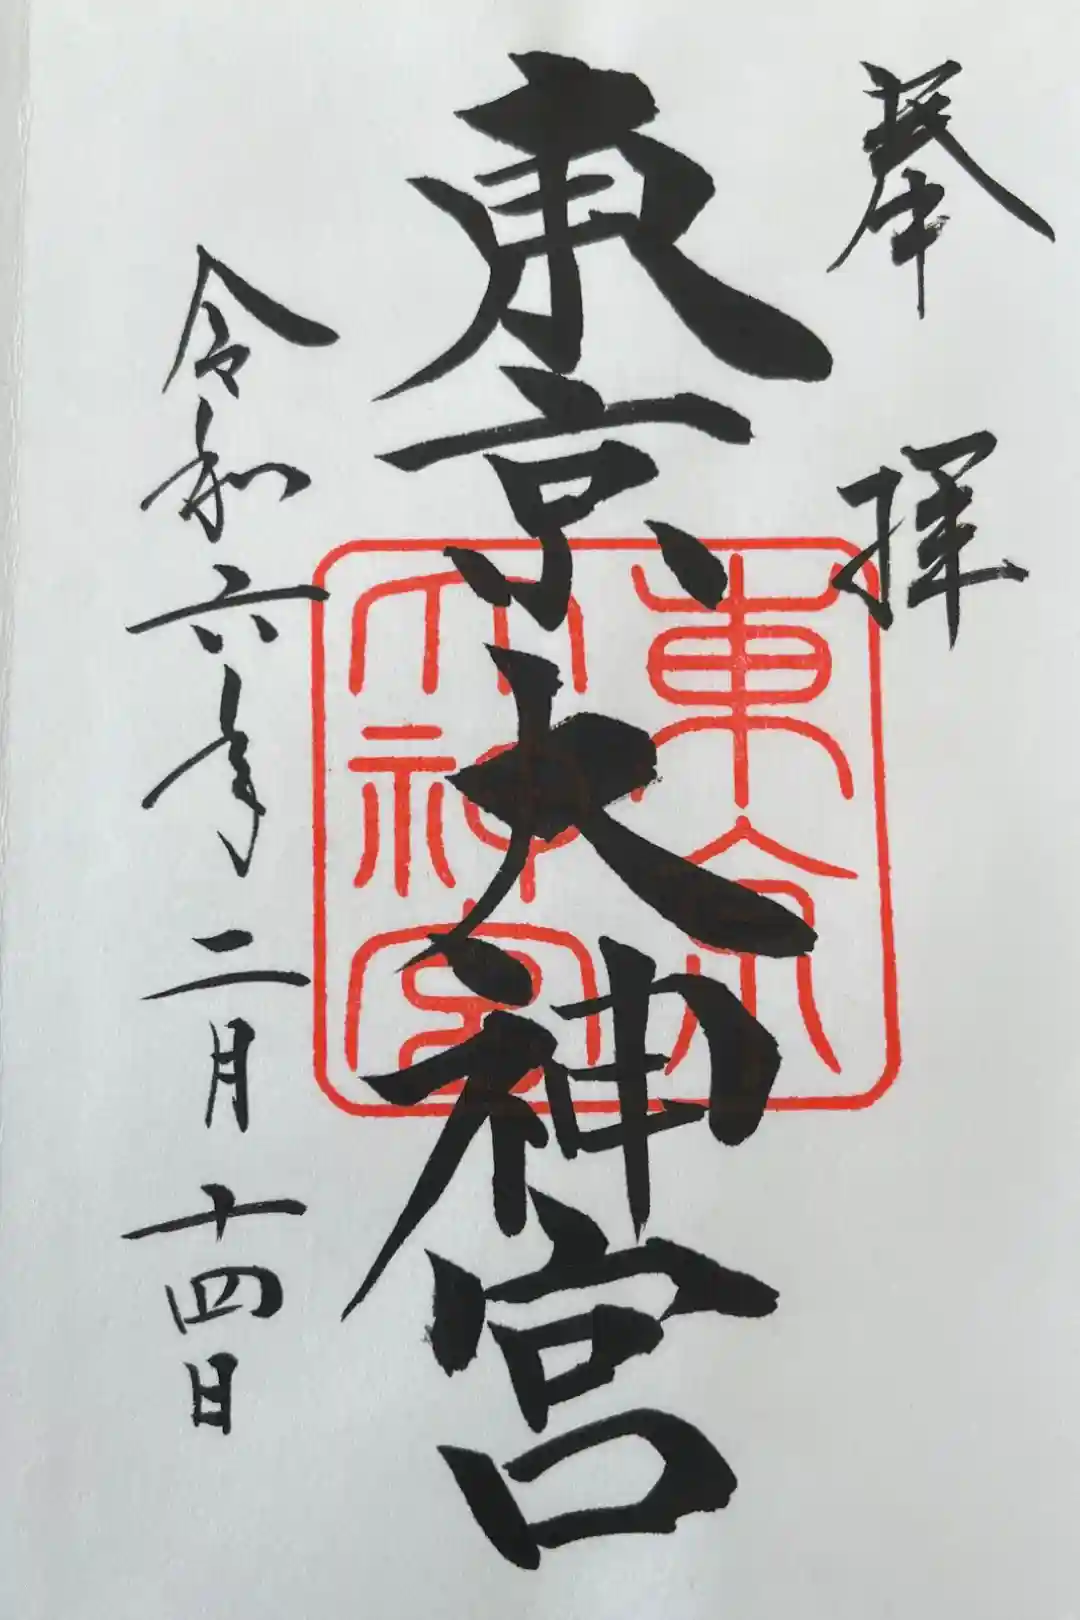 奉拝
東京大神宮
東京
大神宮
令和六年二月十四日